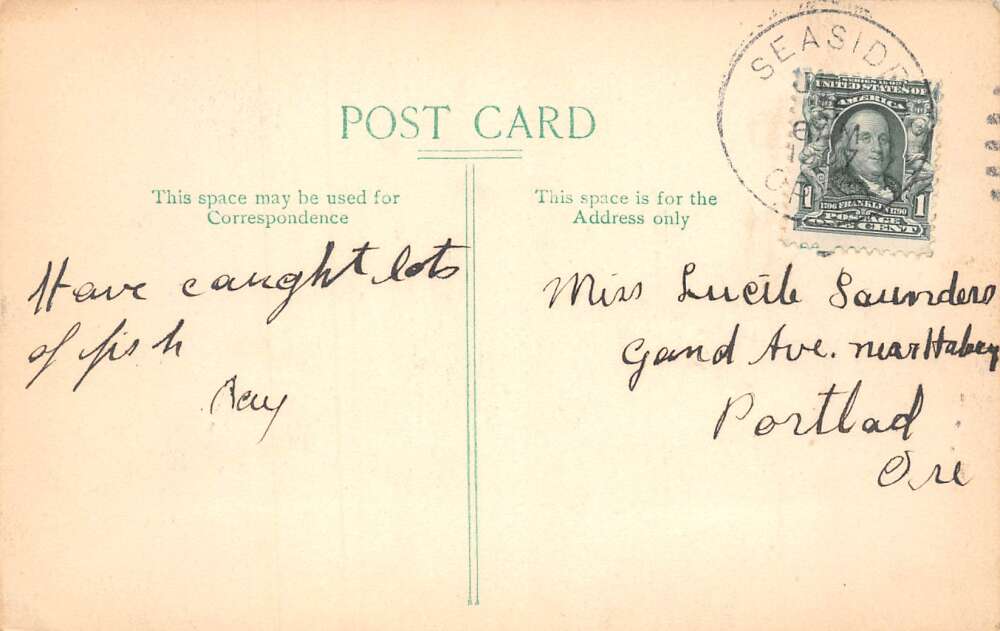 POST CARD
This space may be used for
Correspondence
This space is for the
Address only
SEASIDE
SERIES 1902
UNITED STATES OF
AMERICA
1 1
1706 FRANKLIN 1790
POSTAGE
ONE CENT
Have caught lots
of fish
Ray
Miss Lucile Saunders
Gand Ave. near
Portlad
Ore